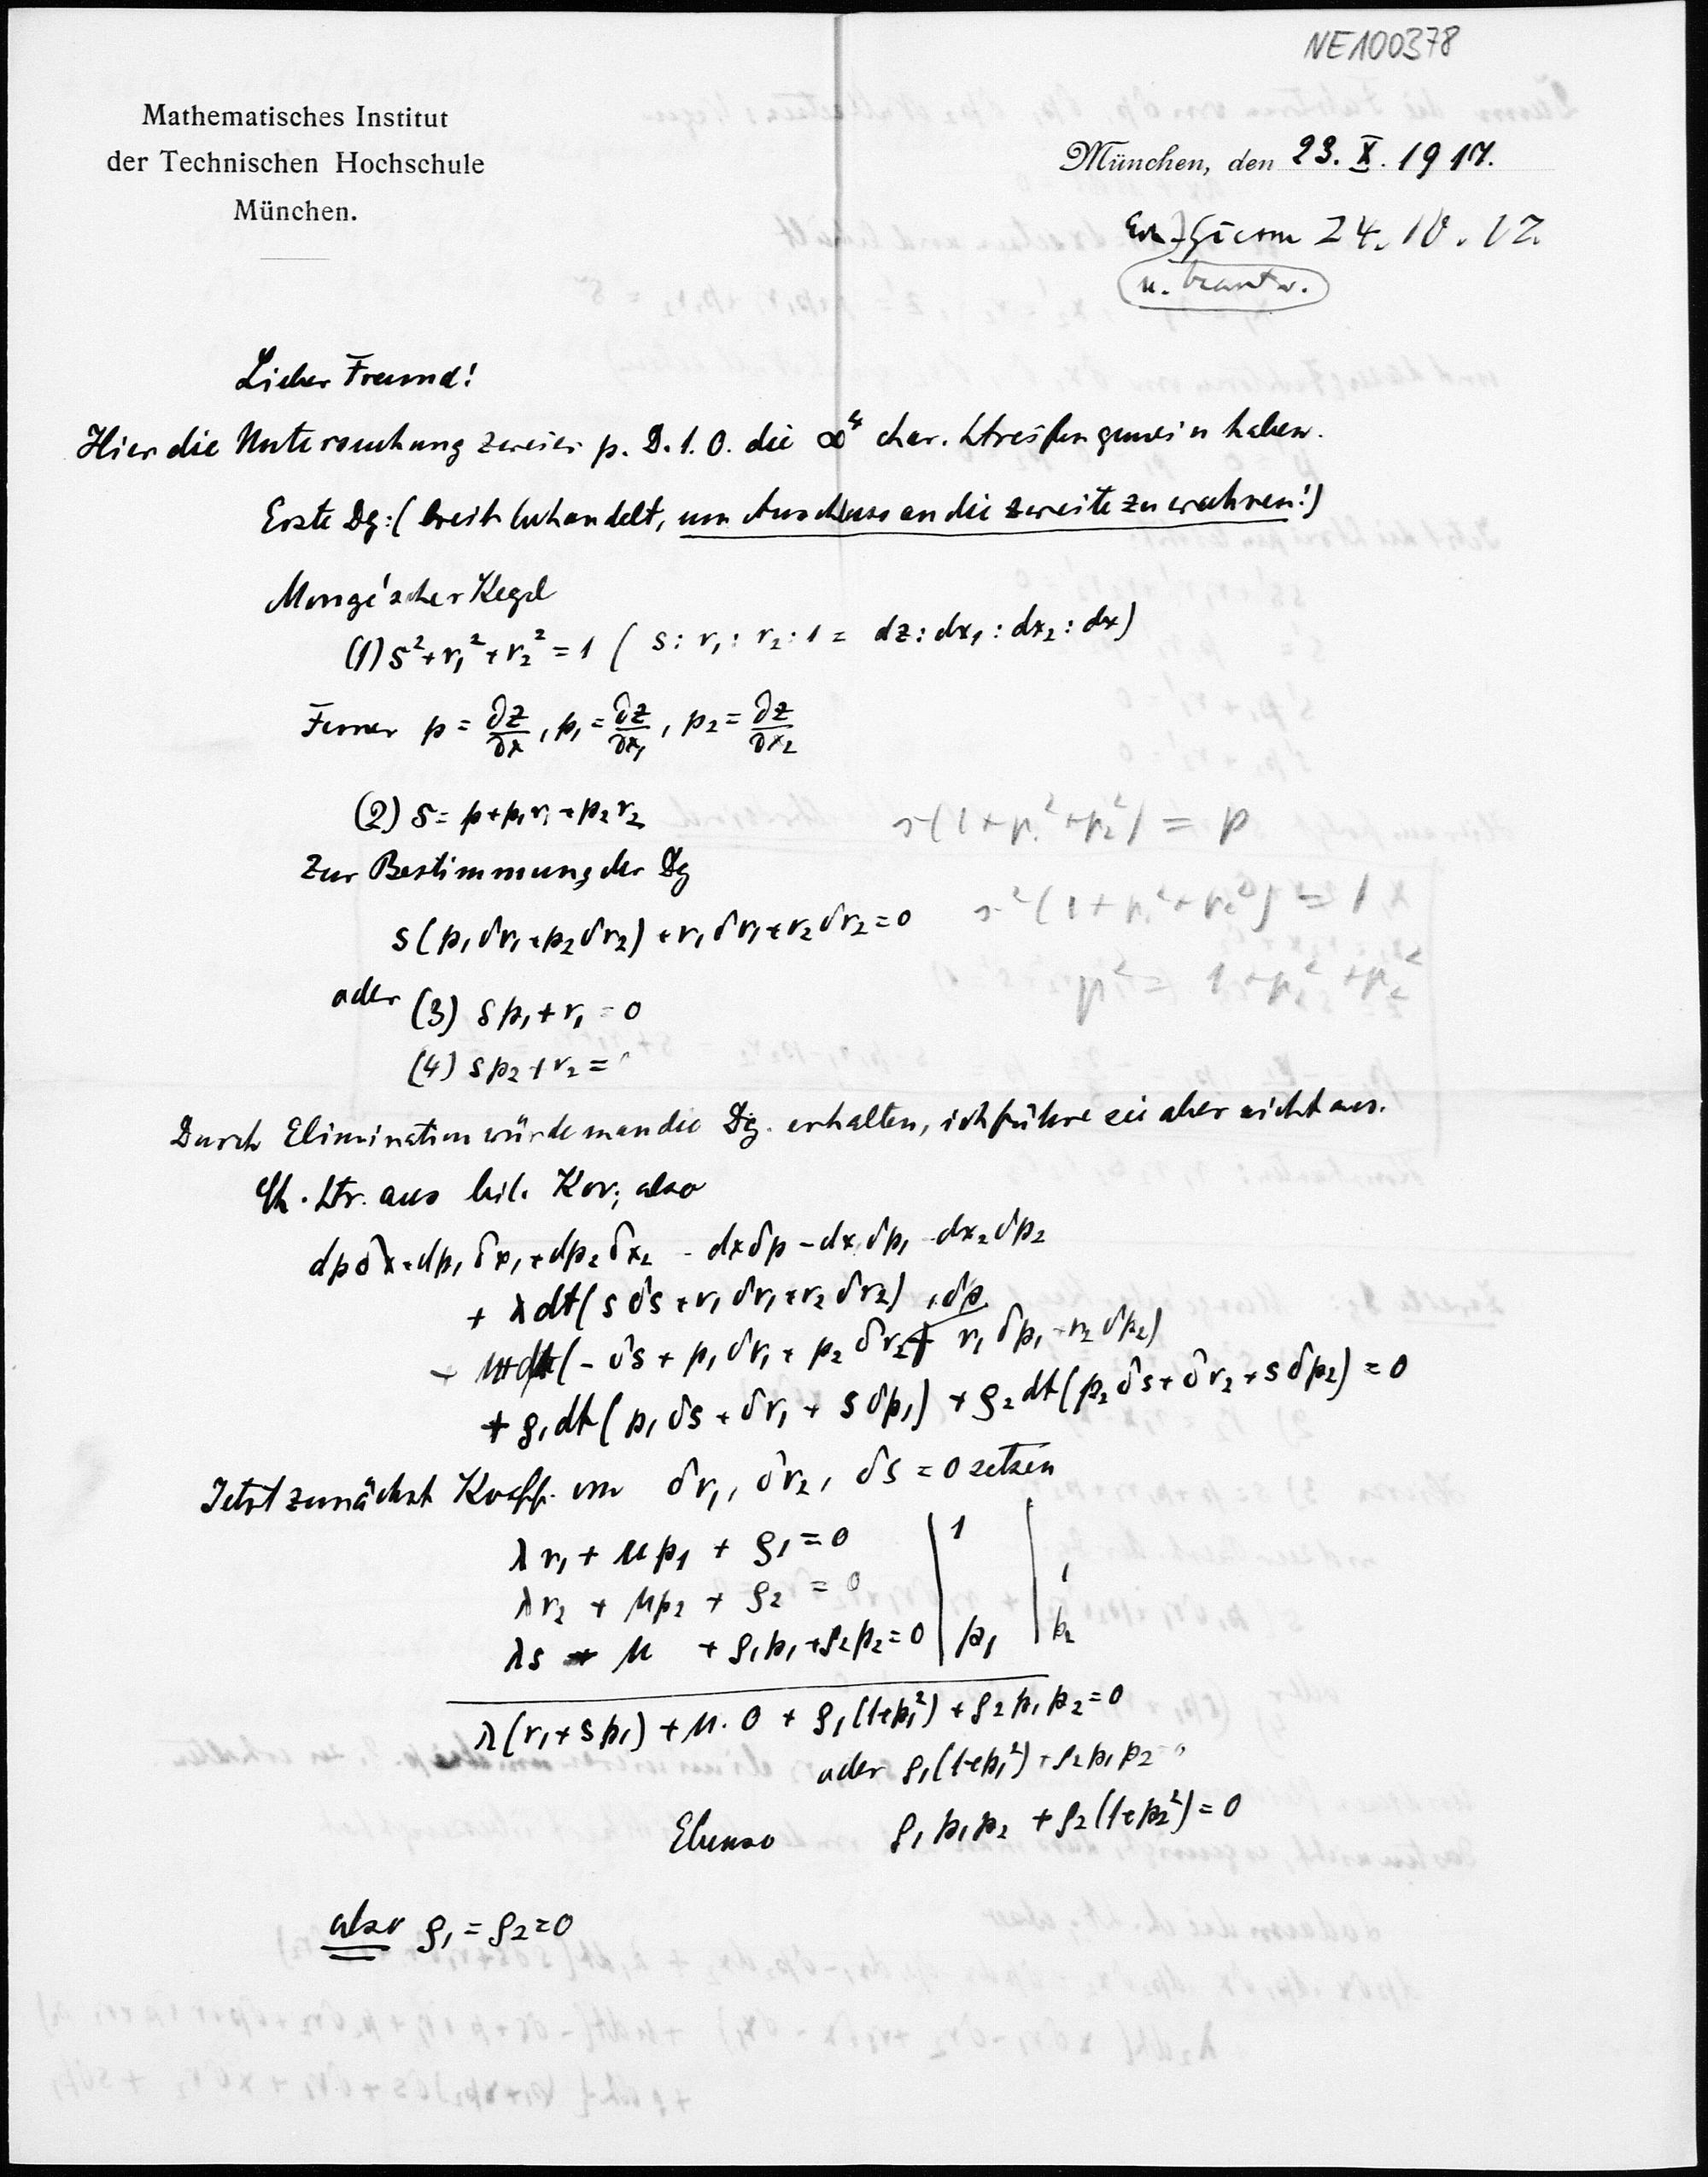 NE100378
Mathematisches Institut
der Technischen Hochschule
München.
München, den 23. X. 1917.
24. 10. 17.
u. beantw.
Lieber Freund!
Hier die Untersuchung zweier p. D. 1. O. die ∞⁴ char. Streifen gemein haben.
Erste Dg: (breit behandelt, um Anschluss an die zweite zu wahren!)
Monge'scher Kegel
(1) s² + r₁² + r₂² = 1 ( s : r₁ : r₂ : 1 = dz : dx₁ : dx₂ : dx)
Ferner p = ∂z/∂x , p₁ = ∂z/∂x₁ , p₂ = ∂z/∂x₂
(2) s = p + p₁r₁ + p₂r₂
s(1 + p₁² + p₂²) = p
Zur Bestimmung der Dg
s²(1 + p₁² + p₂²) = 1
s(p₁δr₁ + p₂δr₂) + r₁δr₁ + r₂δr₂ = 0
p² = 1 + p₁² + p₂²
oder (3) sp₁ + r₁ = 0
(4) sp₂ + r₂ = 0
Durch Elimination würde man die Dg. erhalten, ich führe sie aber nicht aus.
Ch. Str. aus bil. Kov; also
dpδx + dp₁δx₁ + dp₂δx₂ - dxδp - dx₁δp₁ - dx₂δp₂
+ λdt(sδs + r₁δr₁ + r₂δr₂) + δp
+ μdt(- δs + p₁δr₁ + p₂δr₂ + r₁δp₁ + r₂δp₂)
+ ρ₁dt(p₁δs + δr₁ + sδp₁) + ρ₂dt(p₂δs + δr₂ + sδp₂) = 0
Jetzt zunächst Koeff. von δr₁, δr₂, δs = 0 setzen
λr₁ + μp₁ + ρ₁ = 0 | 1 |
λr₂ + μp₂ + ρ₂ = 0 | | 1
λs - μ + ρ₁p₁ + ρ₂p₂ = 0 | p₁ | p₂
λ(r₁ + sp₁) + μ · 0 + ρ₁(1+p₁²) + ρ₂p₁p₂ = 0
oder ρ₁(1+p₁²) + ρ₂p₁p₂ = 0
Ebenso ρ₁p₁p₂ + ρ₂(1+p₂²) = 0
also ρ₁ = ρ₂ = 0